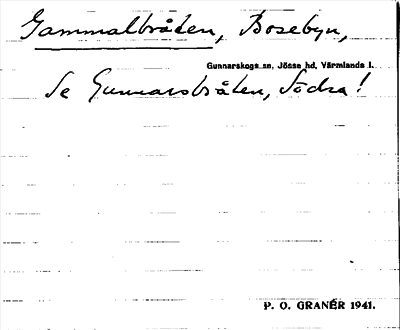 Gammalbråten, Bosebyn,
Gunnarskogs sn, Jösse hd, Värmlands l.
Se Gunnarsbråten, Södra!
P. O. GRANÉR 1941.